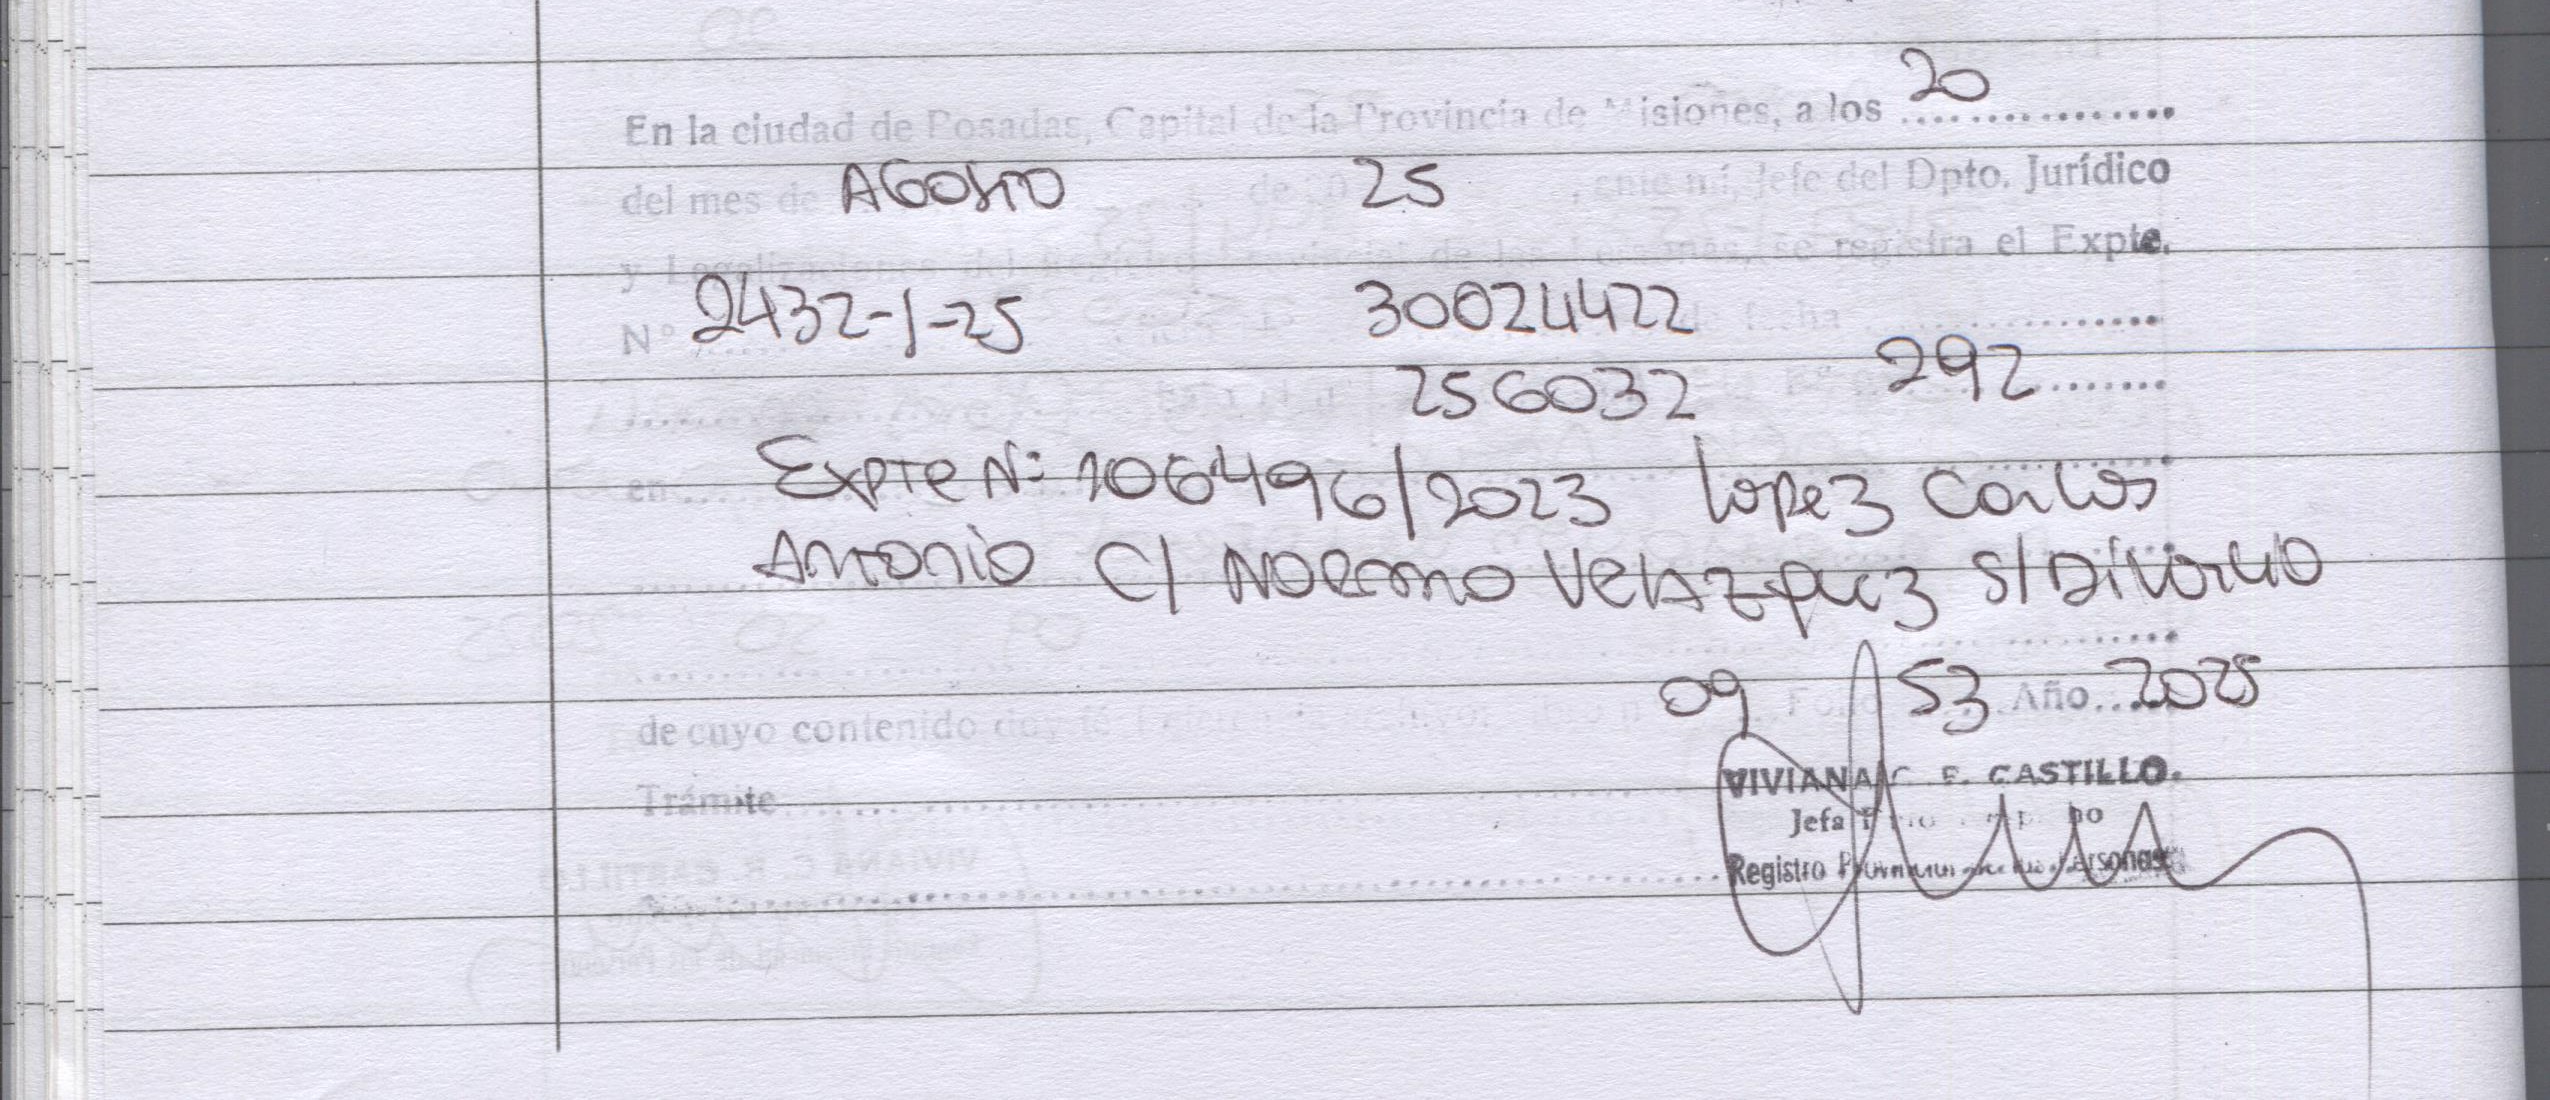 20
En la ciudad de Posadas, Capital de la Provincia de Misiones, a los
del mes de AGOSTO de 20 25, ante mí, Jefe del Dpto. Jurídico
y Legalizaciones del Registro Provincial de las Personas, se registra el Expte.
N° 2432-1-25 30024422 de fecha
256032 292
en Expte N: 106496/2023 Lopez Carlos
Antonio C/ Norma Velazquez S/Divorcio
09 53 Año 2025
de cuyo contenido doy fé Folio
VIVIANA C. E. CASTILLO.
Trámite Jefa
Registro Personas